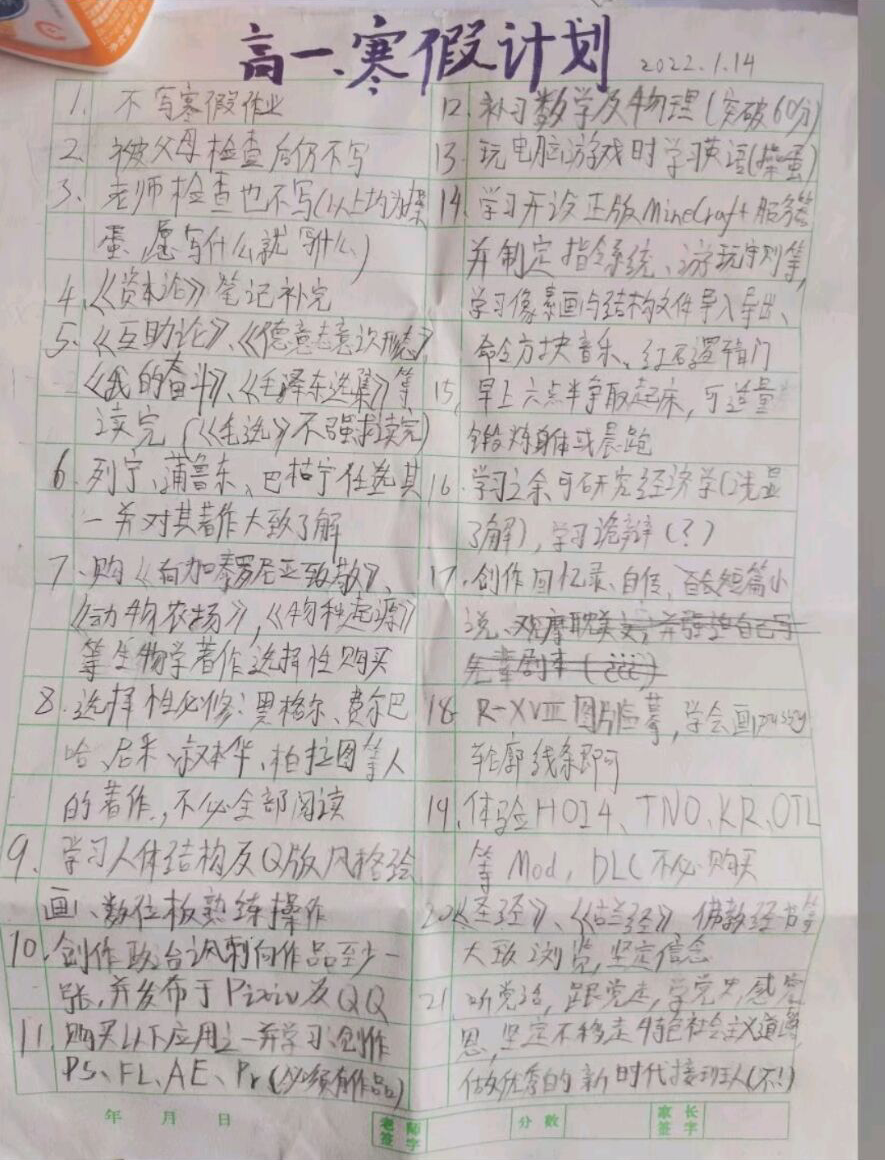 高一寒假计划
2022.1.14
1. 不写寒假作业
2. 被父母检查后仍不写
3. 老师检查也不写(以上均为操
蛋、愿写什么就写什么)
4.《资本论》笔记补完
5.《互助论》、《德意志意识形态》、
《我的奋斗》、《毛泽东选集》等
读完(《毛选》不强求读完)
6. 列宁、蒲鲁东、巴枯宁任选其
一并对其著作大致了解
7. 购《向加泰罗尼亚致敬》、
《动物农场》,《物种起源》
等生物学著作选择性购买
8. 选择性必修:黑格尔、费尔巴
哈、尼采、叔本华、柏拉图等人
的著作,不必全部阅读
9. 学习人体结构及Q版风格绘
画、数位板熟练操作
10. 创作政治讽刺向作品至少一
张,并发布于Pixiv及QQ
11. 购买以下应用之一并学习、创作
PS、FL、AE、Pr(必须有作品)
12. 补习数学及物理(突破60分)
13. 玩电脑游戏时学习英语(操蛋)
14. 学习开设正版MineCraft服务器
并制定指令系统、游玩守则等,
学习像素画与结构文件导入导出、
命令方块音乐、红石逻辑门
15. 早上六点半争取起床,可适量
锻炼身体或晨跑
16. 学习之余可研究经济学(浅显
了解),学习诡辩(?)
17. 创作回忆录、自传,百长短篇小
说、观摩耽美文,并强迫自己写
先辈剧本
18. R-XVIII图片临摹,学会画
轮廓线条即可
19. 体验HOI4、TNO、KR、OTL
等Mod,DLC不必购买
20.《圣经》、《古兰经》、佛教经书等
大致浏览,坚定信念
21. 听党话,跟党走,学党史,感党
恩,坚定不移走特色社会主义道路,
做优秀的新时代接班人(不!)
年 月 日
老师签字
分数
家长签字